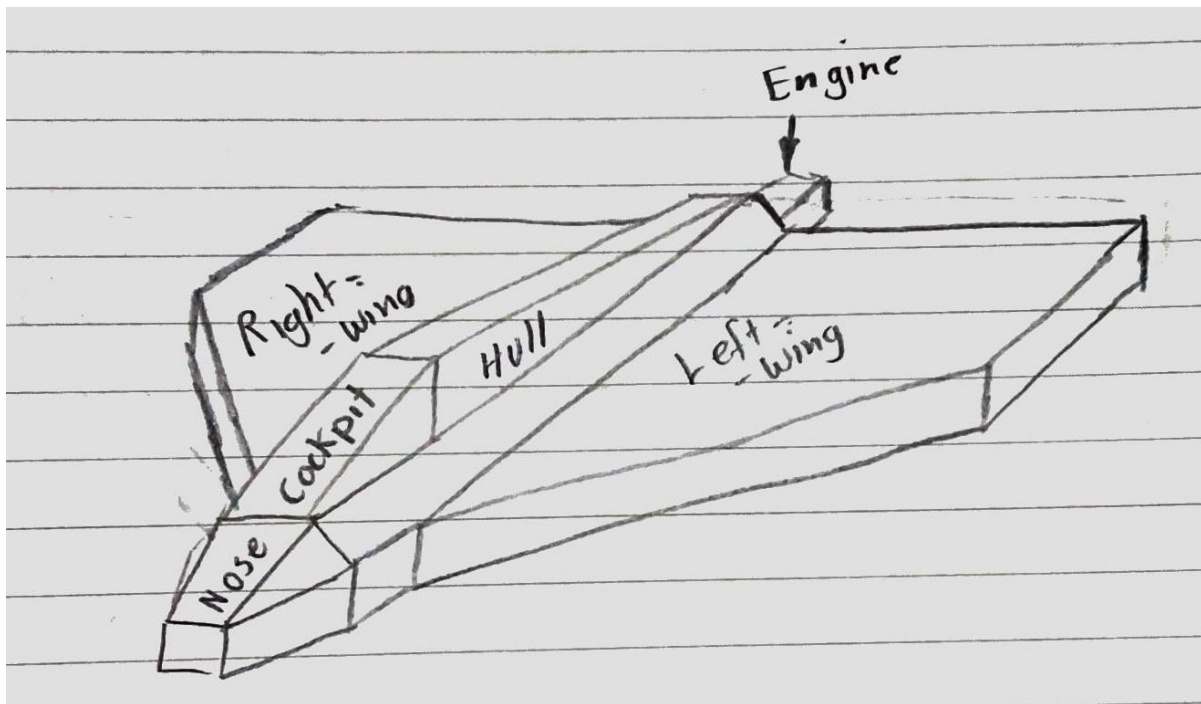 Engine
Right=
-wing
Hull
Left=
-wing
Cockpit
Nose